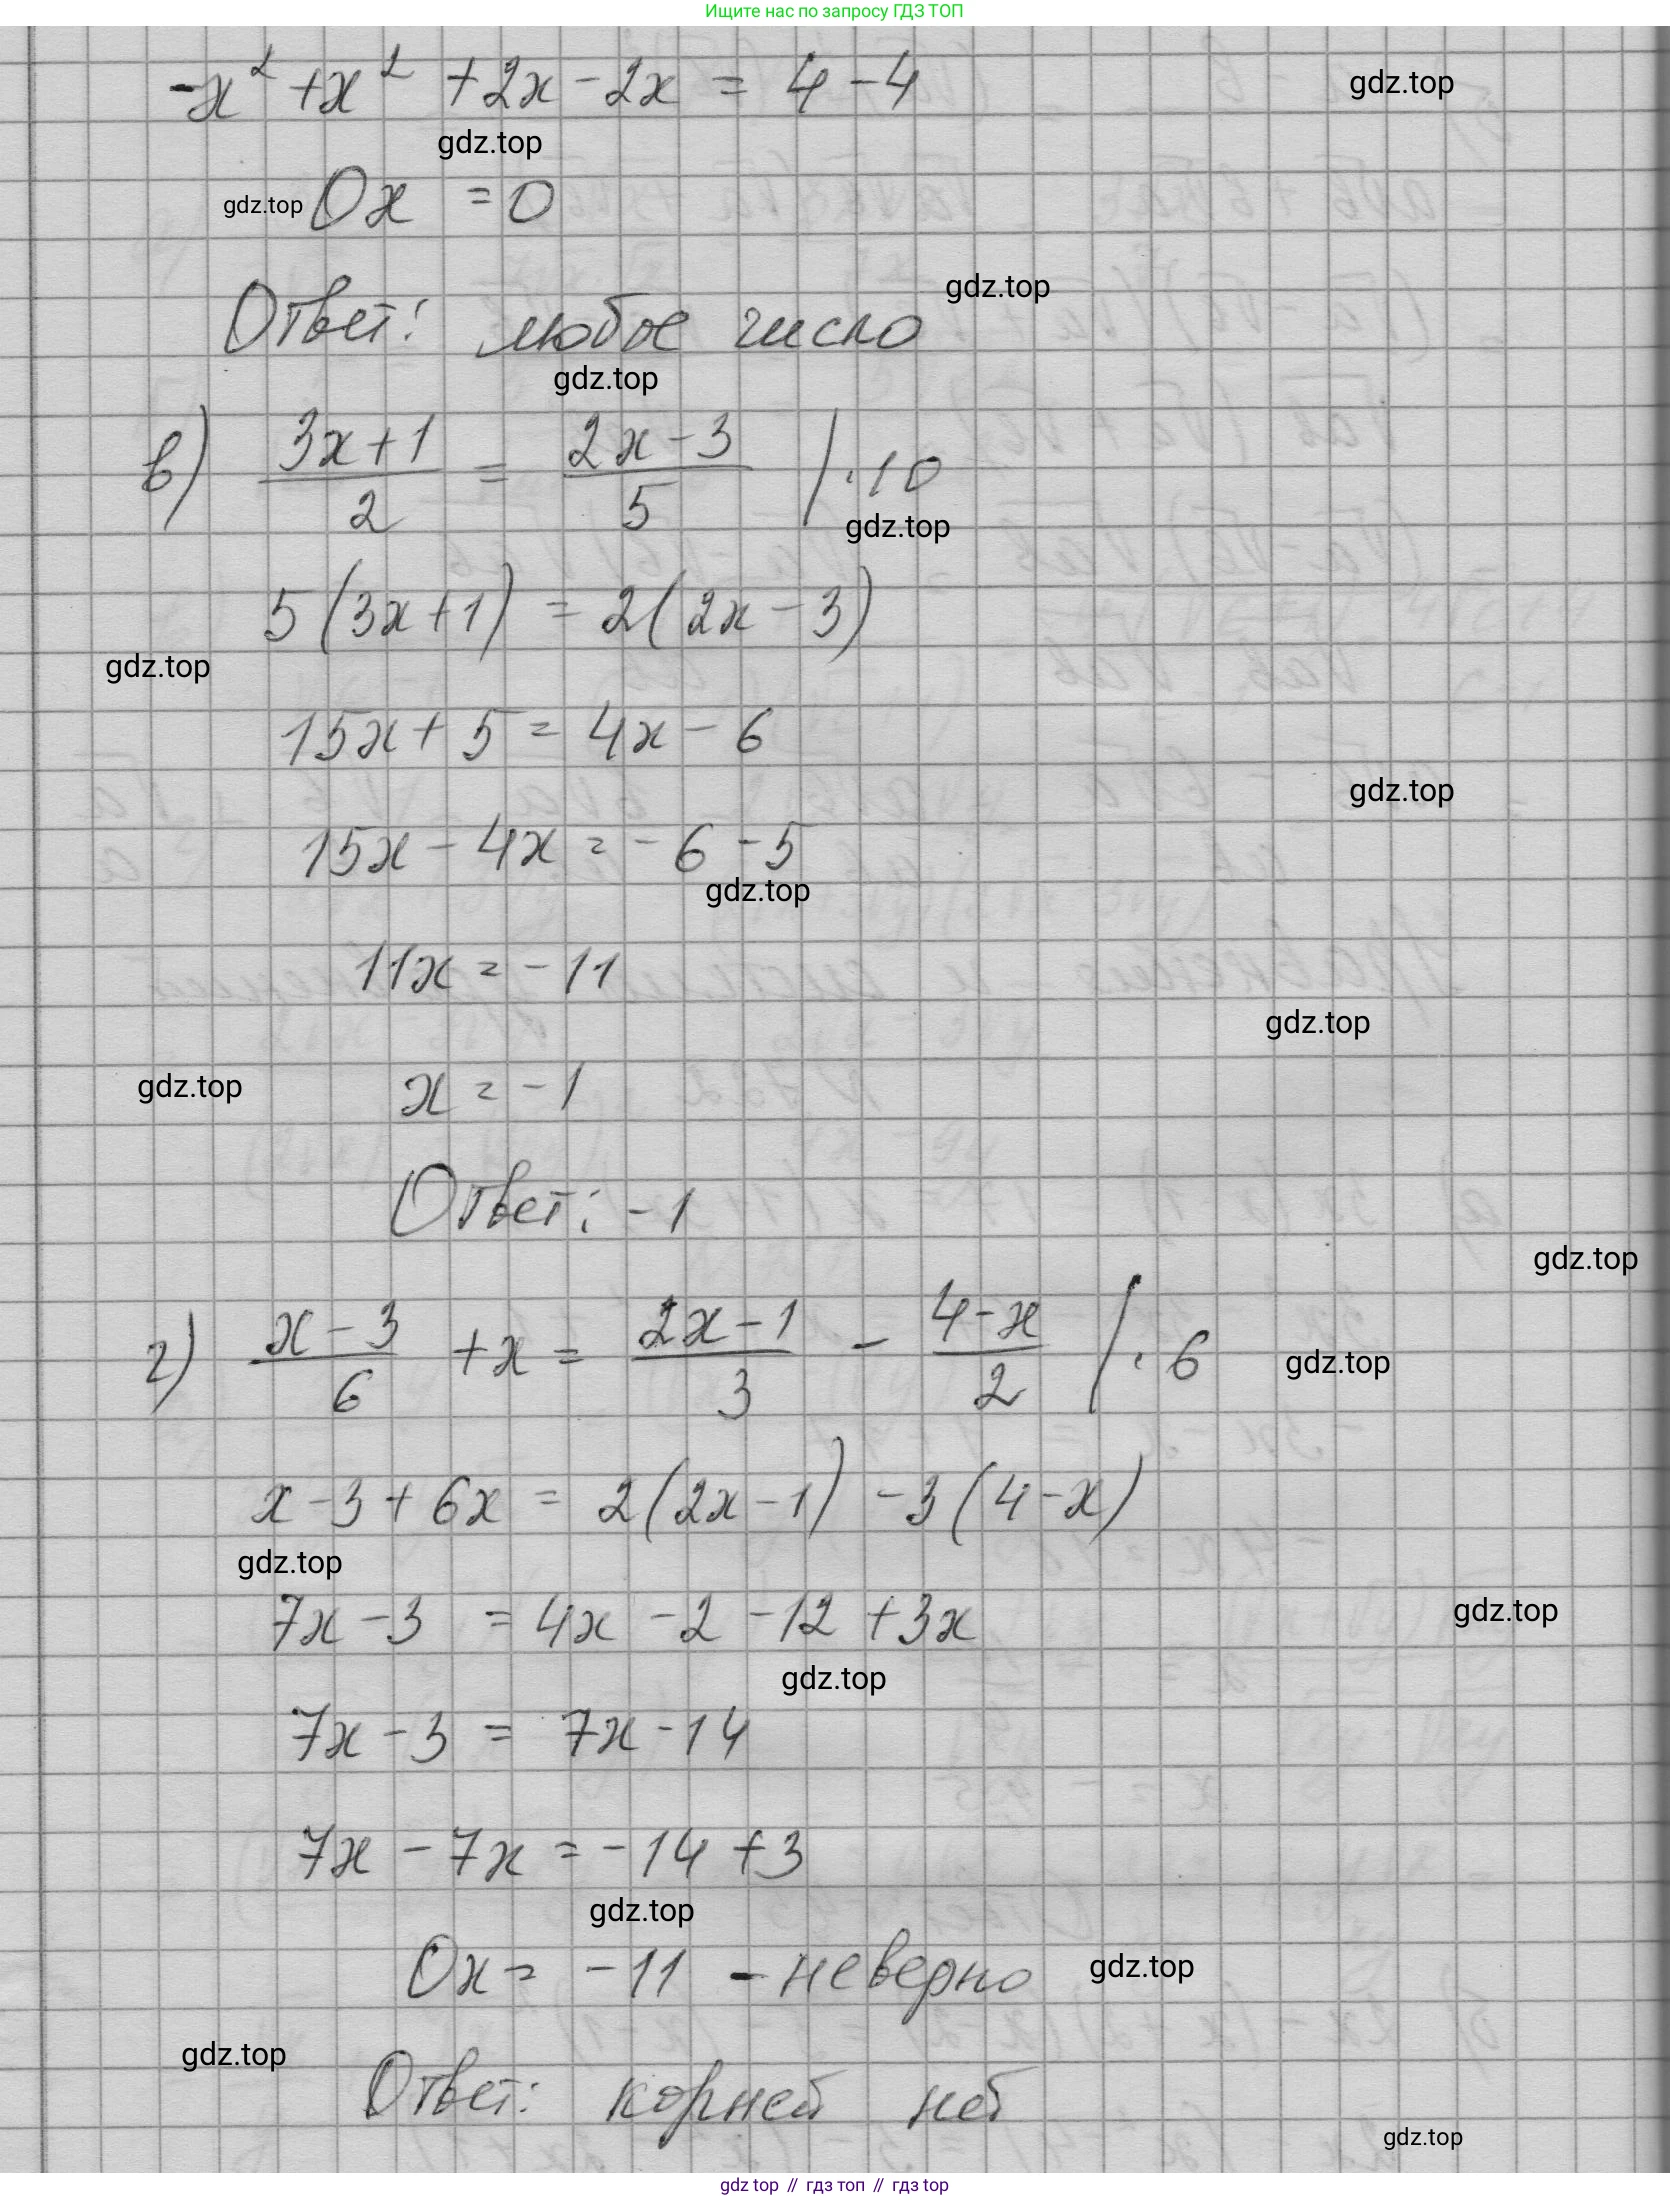 Ищите нас по запросу ГДЗ ТОП
-x² + x² + 2x - 2x = 4 - 4
gdz.top
gdz.top
gdz.top
0x = 0
gdz.top
Ответ: любое число
gdz.top
в) (3x+1)/2 = (2x-3)/5 | ·10
gdz.top
5(3x+1) = 2(2x-3)
gdz.top
15x + 5 = 4x - 6
gdz.top
15x - 4x = -6 - 5
gdz.top
11x = -11
gdz.top
gdz.top
x = -1
Ответ: -1
gdz.top
г) (x-3)/6 + x = (2x-1)/3 - (4-x)/2 | ·6
gdz.top
x - 3 + 6x = 2(2x-1) - 3(4-x)
gdz.top
7x - 3 = 4x - 2 - 12 + 3x
gdz.top
gdz.top
7x - 3 = 7x - 14
7x - 7x = -14 + 3
gdz.top
0x = -11 - неверно
gdz.top
gdz.top
Ответ: корней нет
gdz.top
gdz top // гдз топ // gdz top